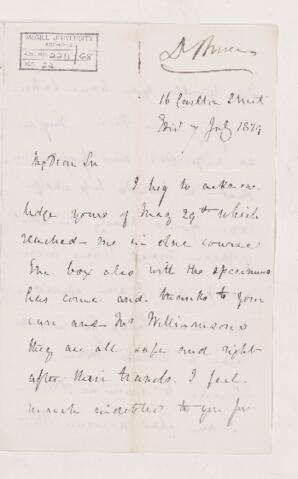 McGILL UNIVERSITY
ARCHIVES
ACC. NO. 2211/68
REF. 22
16 Carlton Street
Edin. 7 July 1879
My Dear Sir
I beg to acknow
ledge yours of May 29th which
reached me in due course
The box also with the specimens
has come and thanks to your
care and Mr Williamson's
they are all safe and right
after their travels. I feel
much indebted to you for